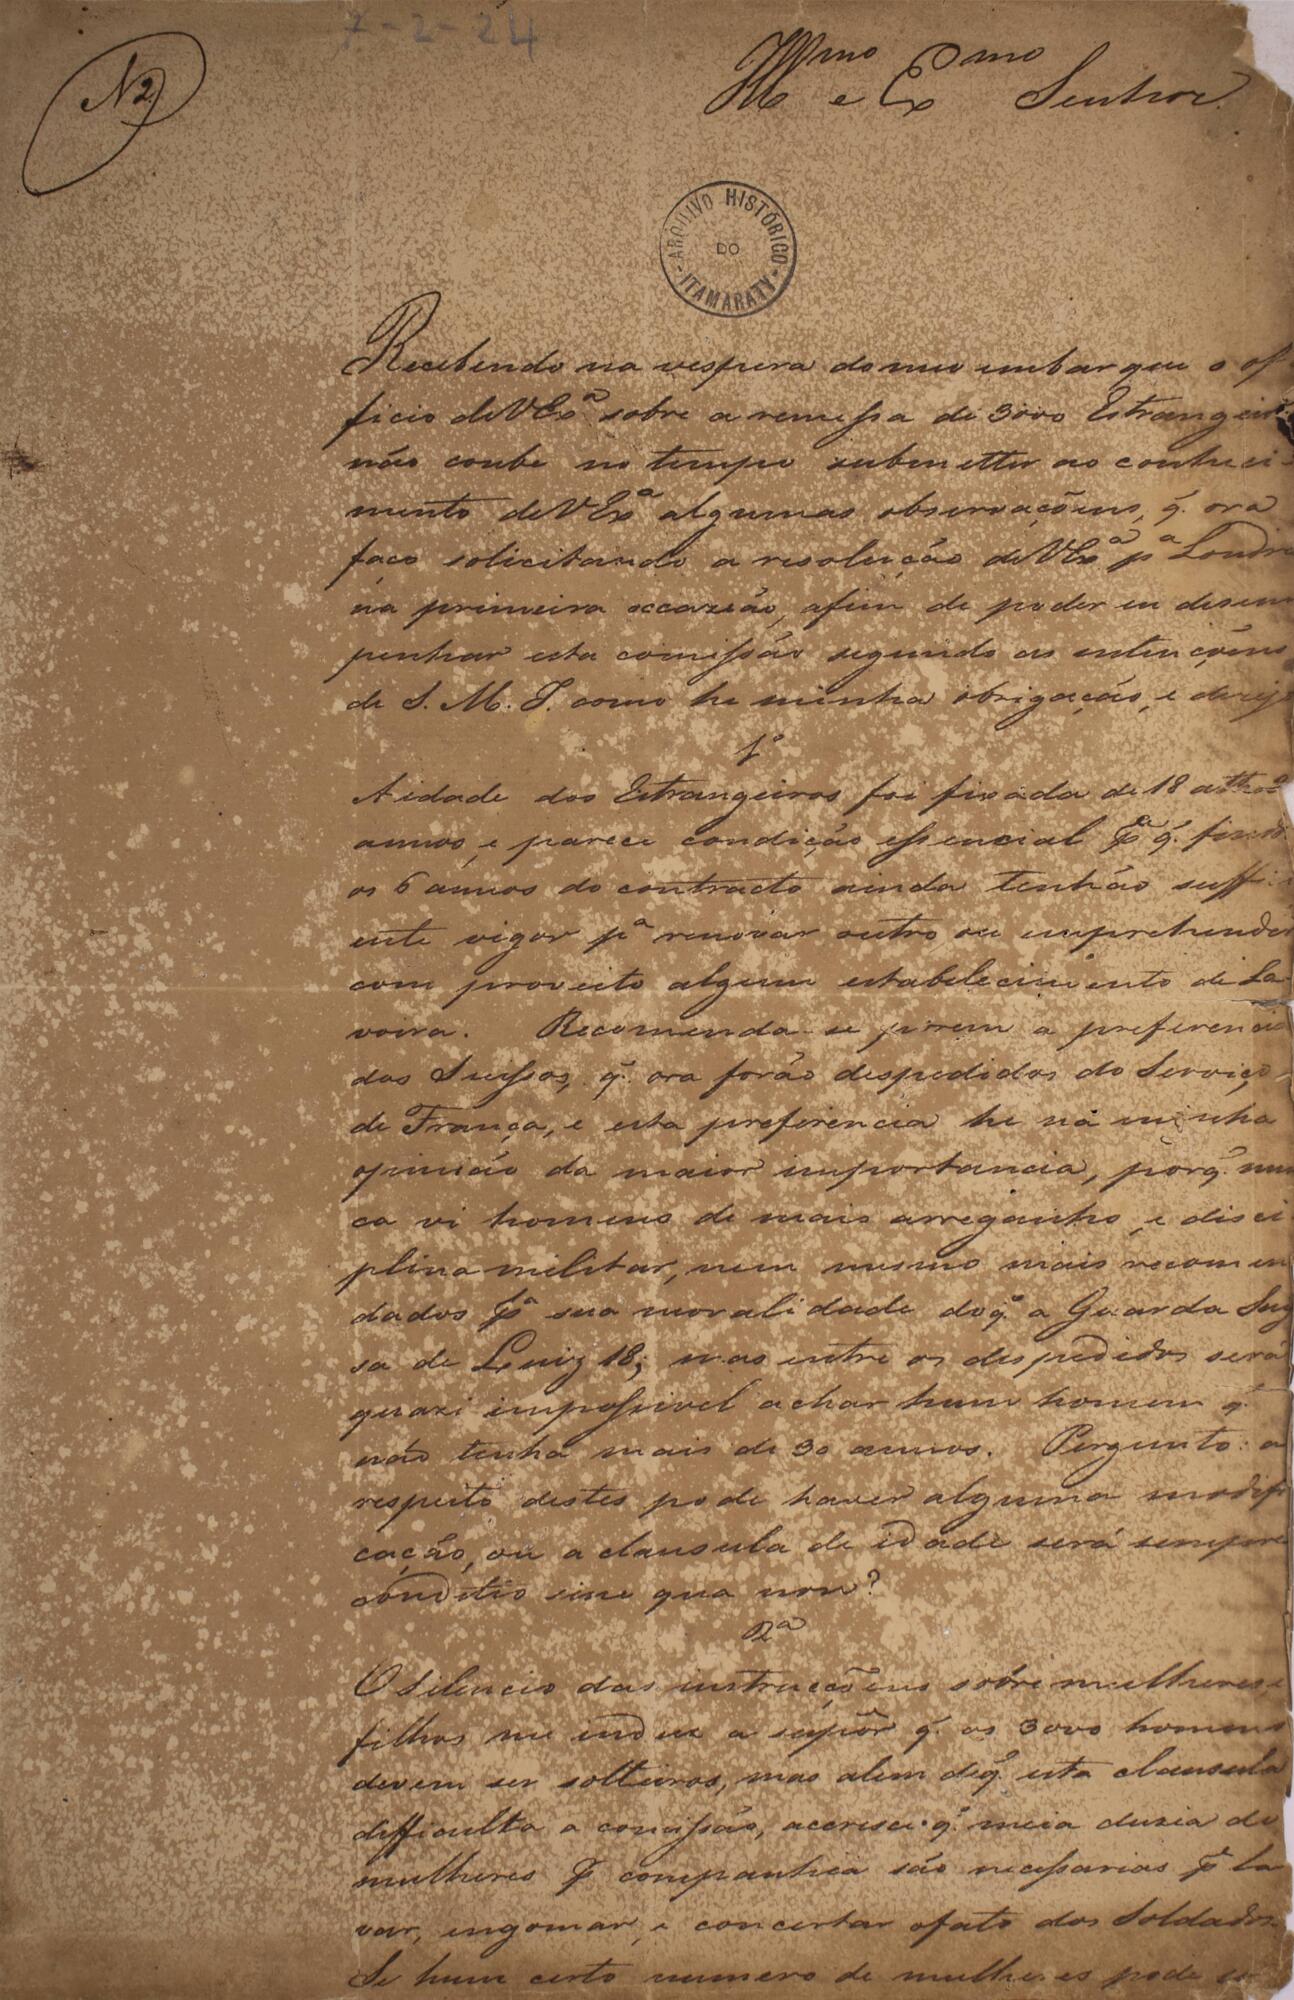 7-2-24
N2
Illmo e Exmo Senhor
ARQUIVO HISTÓRICO DO ITAMARATY
Recebendo na vespera do meu embarque o of
ficio de VExª sobre a remessa de 3000 Estrangeiros
não coube no tempo submetter ao conheci-
mento de VExª algumas observaçõens, q̃. ora
faço solicitando a resolução de VExª pª Londres
na primeira occazião, afim de poder eu desem
penhar esta comissão segundo as intençõens
de S. M. I. como he minha obrigação, e desejo
1º
A idade dos Estrangeiros foi fixada de 18 atthe
annos, e parece condição essencial pª q̃. findos
os 6 annos do contracto ainda tenhão suffici
ente vigor pª renovar outro ou emprehender
com proveito algum estabelecimento de La
voira. Recomenda-se porem a preferencia
dos Suissos, q̃. ora forão despedidos do Serviço
de França, e esta preferencia he na minha
opinião da maior importancia, porq̃. nun
ca vi homens de mais arreganho, e disci
plina militar, nem mesmo mais recomen
dados pª sua moralidade doq̃ a Guarda Suis
sa de Luiz 18; mas entre os despedidos será
quazi impossivel achar hum homem q̃.
não tenha mais de 30 annos. Pergunto: a
respeito destes pode haver alguma modifi
cação, ou a clausula de idade será sempre
conditio sine qua non?
2ª
O silencio das instrucçõens sobre mulheres, e
filhos me induz a supôr q̃. os 3000 homens
devem ser solteiros, mas alem deq̃. esta clausula
difficulta a comissão, accresce q̃. meia duzia de
mulheres pr companhia são necessarias pª la
var, engomar, e concertar o fato dos Soldados.
Se hum certo numero de mulheres pode